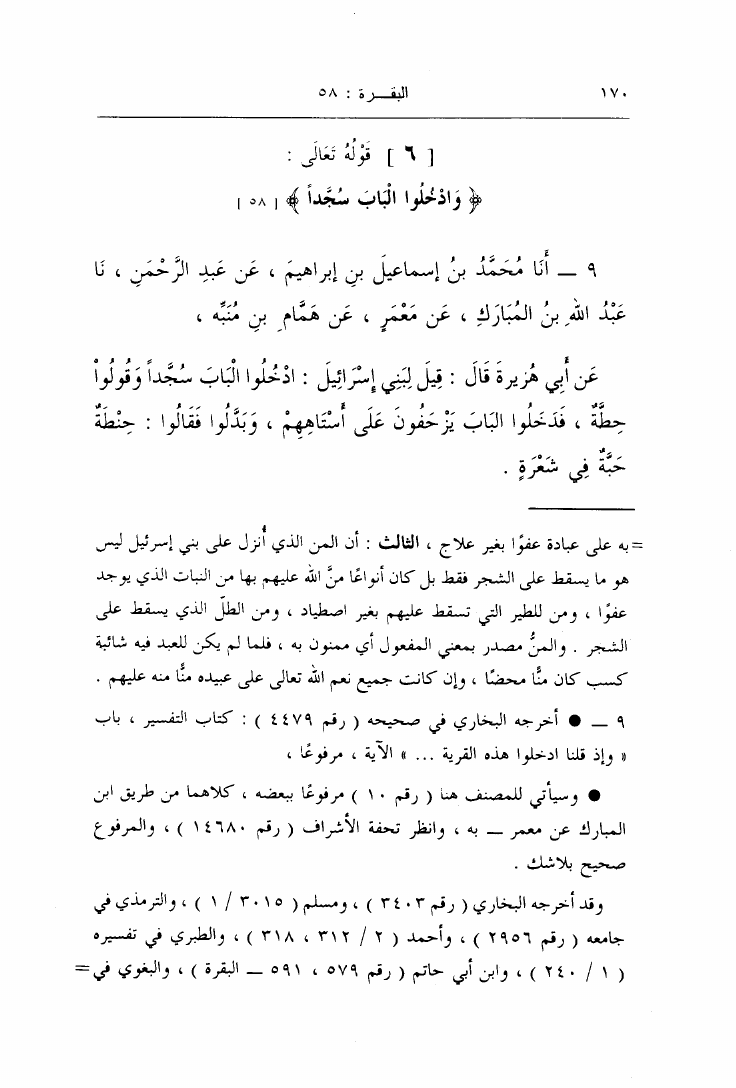 ١٧٠ البقـــرة : ٥٨
[ ٦ ] قَوْلُهُ تَعَالَى :
﴿ وَادْخُلُوا الْبَابَ سُجَّداً ﴾ [ ٥٨ ]
٩ ــ أَنَا مُحَمَّدُ بنُ إسماعيلَ بنِ إبراهيمَ ، عَن عَبدِ الرَّحْمَنِ ، نَا
عَبْدُ اللهِ بنُ المُبَارَكِ ، عَن مَعْمَرٍ ، عَن هَمَّامِ بنِ مُنَبِّه ،
عَن أَبِي هُرَيرةَ قَالَ : قِيلَ لِبَنِي إِسْرَائِيلَ : ادْخُلُوا الْبَابَ سُجَّداً وَقُولُواْ
حِطَّةٌ ، فَدَخَلُوا البَابَ يَزْحَفُونَ عَلَى أَسْتَاهِهِمْ ، وَبَدَّلُوا فَقَالُوا : حِنْطَةٌ
حَبَّةٌ فِي شَعْرَةٍ .
= به على عبادة عفوًا بغير علاج ، الثالث : أن المن الذي أُنزل على بني إسرئيل ليس
هو ما يسقط على الشجر فقط بل كان أنواعًا منَّ الله عليهم بها من النبات الذي يوجد
عفوًا ، ومن للطير التي تسقط عليهم بغير اصطياد ، ومن الطلّ الذي يسقط على
الشجر . والمنُّ مصدر بمعني المفعول أي ممنون به ، فلما لم يكن للعبد فيه شائبة
كسب كان منًّا محضًا ، وإن كانت جميع نعم الله تعالى على عبيده منًّا منه عليهم .
٩ ــ ● أخرجه البخاري في صحيحه ( رقم ٤٤٧٩ ) : كتاب التفسير ، باب
« وإذ قلنا ادخلوا هذه القرية ... » الآية ، مرفوعًا ،
● وسيأتي للمصنف هنا ( رقم ١٠ ) مرفوعًا ببعضه ، كلاهما من طريق ابن
المبارك عن معمر ــ به ، وانظر تحفة الأشراف ( رقم ١٤٦٨٠ ) ، والمرفوع
صحيح بلاشك .
وقد أخرجه البخاري ( رقم ٣٤٠٣ ) ، ومسلم ( ٣٠١٥ / ١ ) ، والترمذي في
جامعه ( رقم ٢٩٥٦ ) ، وأحمد ( ٢ / ٣١٢ ، ٣١٨ ) ، والطبري في تفسيره
( ١ / ٢٤٠ ) ، وابن أبي حاتم ( رقم ٥٧٩ ، ٥٩١ ــ البقرة ) ، والبغوي في =